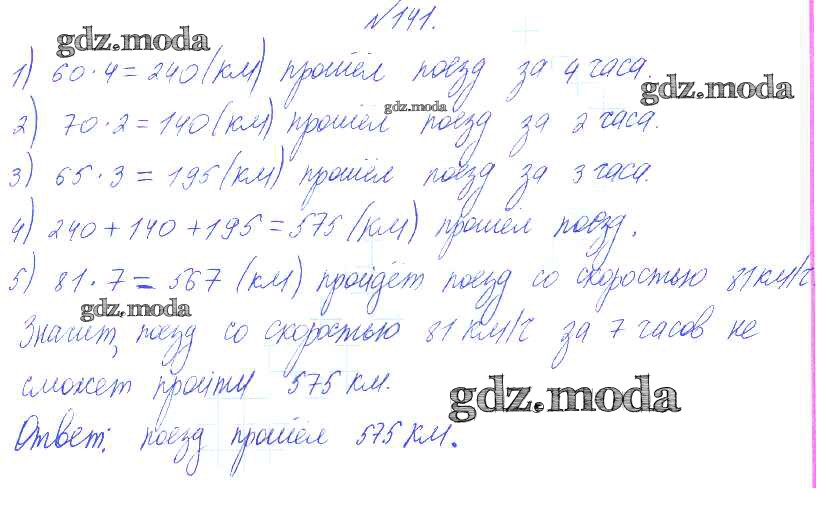 №141.
gdz.moda
1) 60·4=240(км) прошёл поезд за 4 часа.
gdz.moda
gdz.moda
2) 70·2=140(км) прошёл поезд за 2 часа.
3) 65·3=195(км) прошёл поезд за 3 часа.
4) 240+140+195=575(км) прошёл поезд.
5) 81·7=567 (км) пройдёт поезд со скоростью 81км/ч.
gdz.moda
Значит, поезд со скоростью 81 км/ч за 7 часов не
сможет пройти 575 км.
gdz.moda
Ответ: поезд прошёл 575 км.